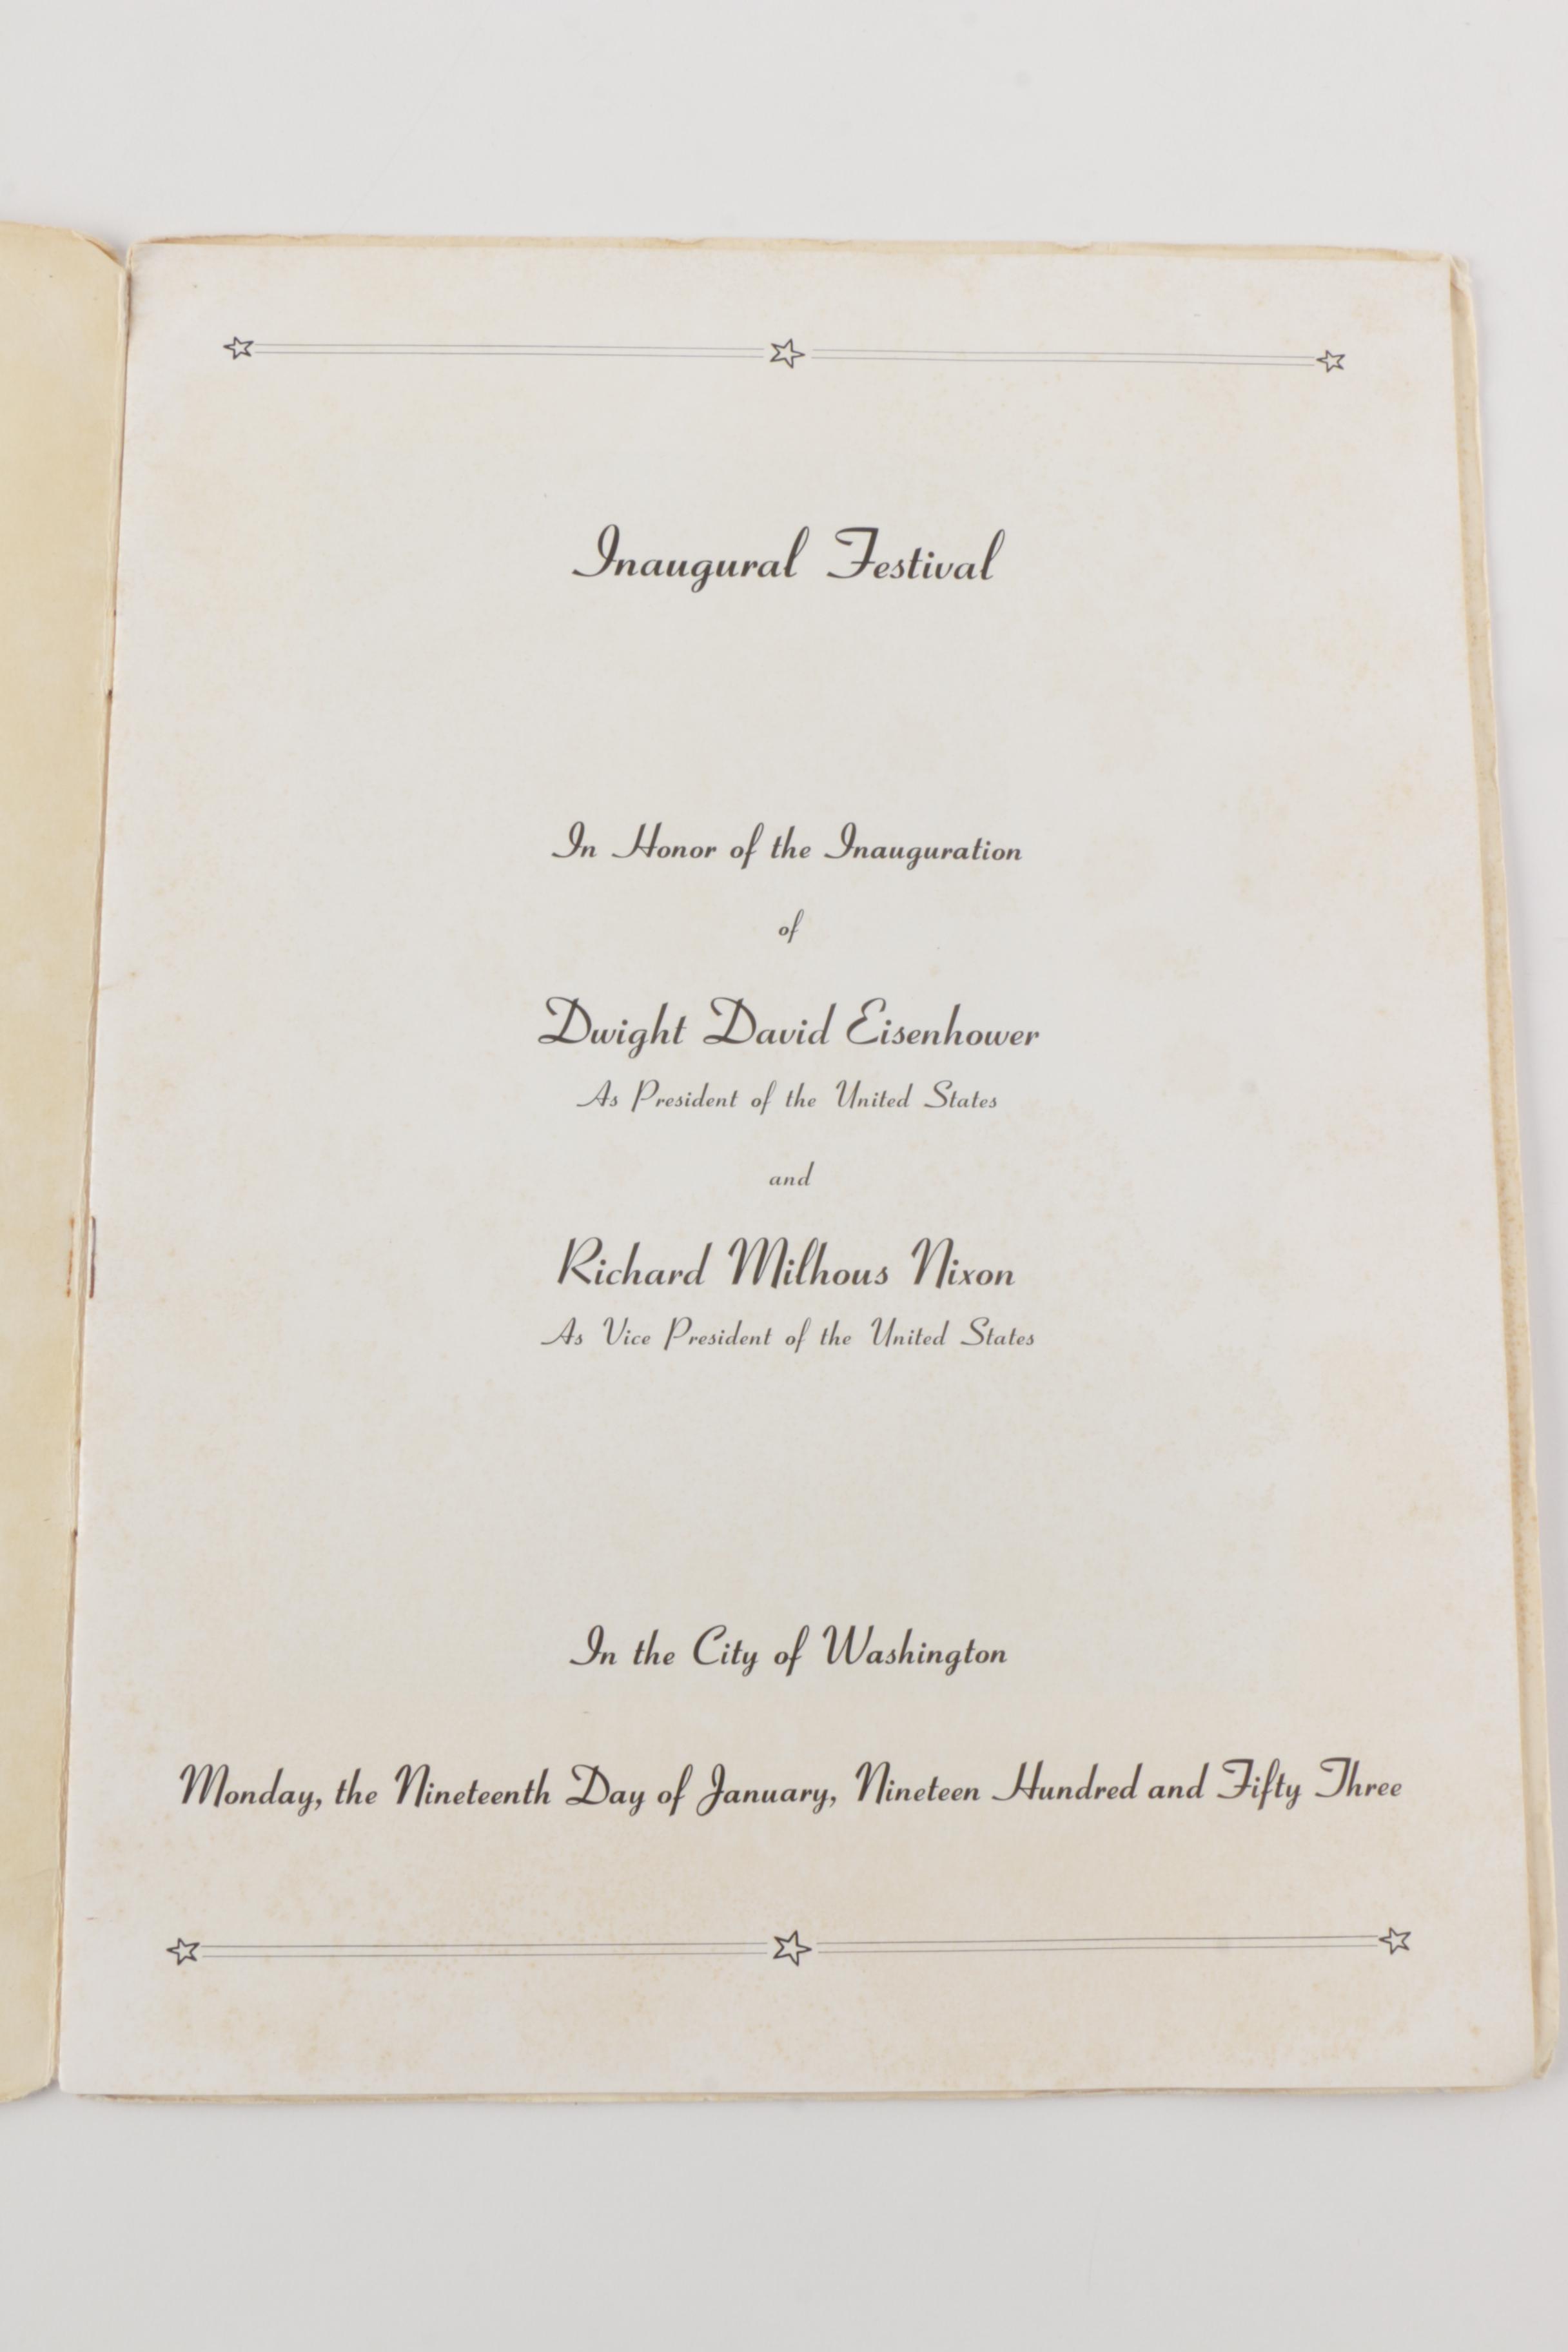 Inaugural Festival
In Honor of the Inauguration
of
Dwight David Eisenhower
As President of the United States
and
Richard Milhous Nixon
As Vice President of the United States
In the City of Washington
Monday, the Nineteenth Day of January, Nineteen Hundred and Fifty Three